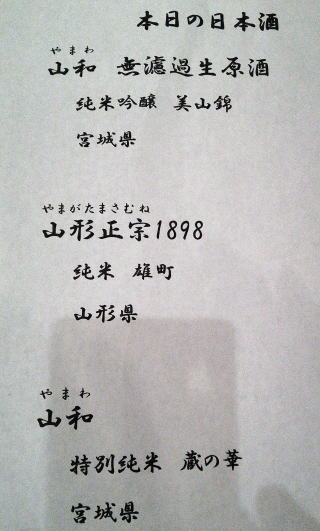 本日の日本酒
やまわ
山和 無濾過生原酒
純米吟醸 美山錦
宮城県
やまがたまさむね
山形正宗1898
純米 雄町
山形県
やまわ
山和
特別純米 蔵の華
宮城県